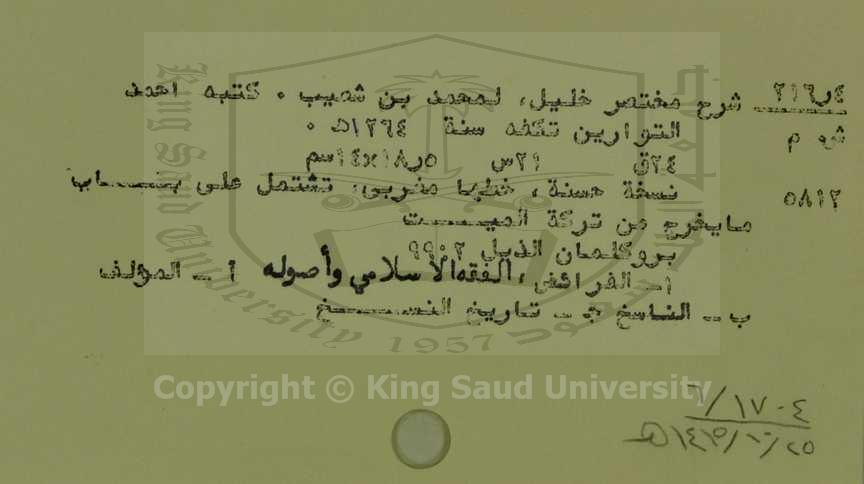 ٢١٦ر٤ شرح مختصر خليل، لمحمد بن شعيب ٠ كتبه احمد
ش ٠ م التوارين تكفه سنة ١٢٦٤هـ ٠
٢٤ق ٢١س ٥ر١٨×١٤سم
٥٨١٢ نسخة حسنة، خطها مغربي، تشتمل على بـــاب
مايخرج من تركة الميـــت
بروكلمان الذيل ٢ : ٩٩
١ـ الفرائض، الفقه الاسلامي وأصوله أ ـ المؤلف
ب ـ الناسخ ج ـ تاريخ النســـخ
King Saud University
1957
Copyright © King Saud University
١٧٠٤ / ٦